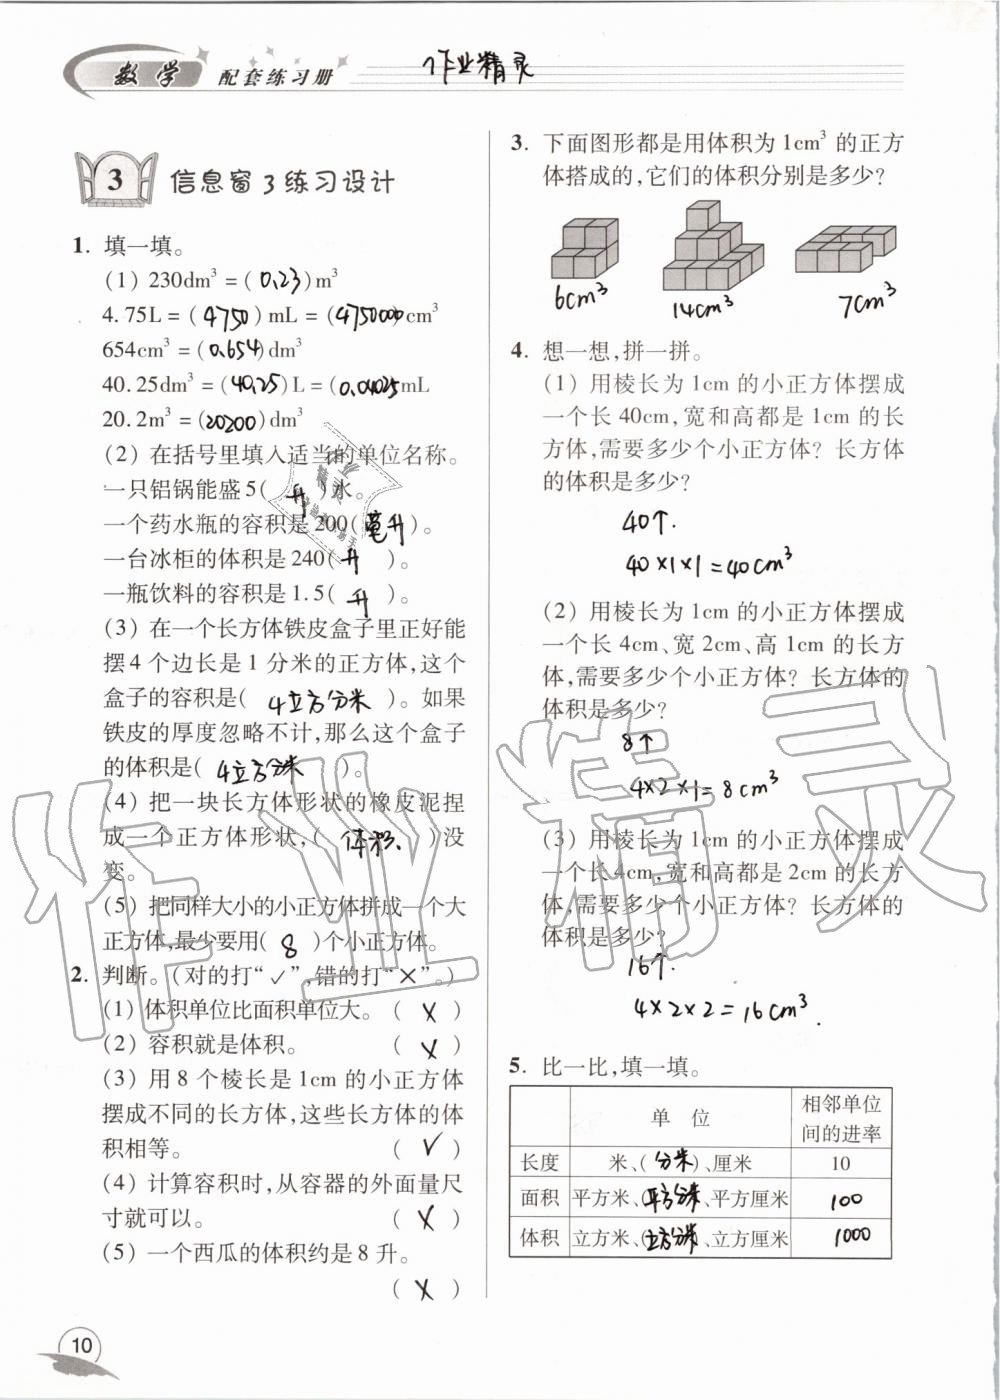 数学 配套练习册
作业精灵
3 信息窗3练习设计
1. 填一填。
(1) 230dm³ = ( 0.23 ) m³
4.75L = ( 4750 ) mL = ( 4750000 ) cm³
654cm³ = ( 0.654 ) dm³
40.25dm³ = ( 40.25 ) L = ( 0.04025 mL
20.2m³ = ( 20200 ) dm³
(2) 在括号里填入适当的单位名称。
一只铝锅能盛5( 升 )水。
一个药水瓶的容积是200( 毫升 )。
一台冰柜的体积是240( 升 )。
一瓶饮料的容积是1.5( 升 )。
(3) 在一个长方体铁皮盒子里正好能
摆4个边长是1分米的正方体,这个
盒子的容积是( 4立方分米 )。如果
铁皮的厚度忽略不计,那么这个盒子
的体积是( 4立方分米 )。
(4) 把一块长方体形状的橡皮泥捏
成一个正方体形状,( 体积. )没
变。
(5) 把同样大小的小正方体拼成一个大
正方体,最少要用( 8 )个小正方体。
2. 判断。(对的打“✓”,错的打“×”。)
(1) 体积单位比面积单位大。 ( × )
(2) 容积就是体积。 ( × )
(3) 用8个棱长是1cm的小正方体
摆成不同的长方体,这些长方体的体
积相等。 ( ✓ )
(4) 计算容积时,从容器的外面量尺
寸就可以。 ( × )
(5) 一个西瓜的体积约是8升。
( × )
10
3. 下面图形都是用体积为1cm³的正方
体搭成的,它们的体积分别是多少?
6cm³ 14cm³ 7cm³
4. 想一想,拼一拼。
(1) 用棱长为1cm的小正方体摆成
一个长40cm,宽和高都是1cm的长
方体,需要多少个小正方体? 长方体
的体积是多少?
40个.
40×1×1=40cm³
(2) 用棱长为1cm的小正方体摆成
一个长4cm、宽2cm、高1cm的长方
体,需要多少个小正方体? 长方体的
体积是多少?
8个
4×2×1=8cm³
(3) 用棱长为1cm的小正方体摆成
一个长4cm,宽和高都是2cm的长方
体,需要多少个小正方体? 长方体的
体积是多少?
16个.
4×2×2=16cm³.
5. 比一比,填一填。
单 位 相邻单位
间的进率
长度 米、( 分米 )、厘米 10
面积 平方米、(平方分米、平方厘米 100
体积 立方米、(立方分米、立方厘米 1000
作业精灵